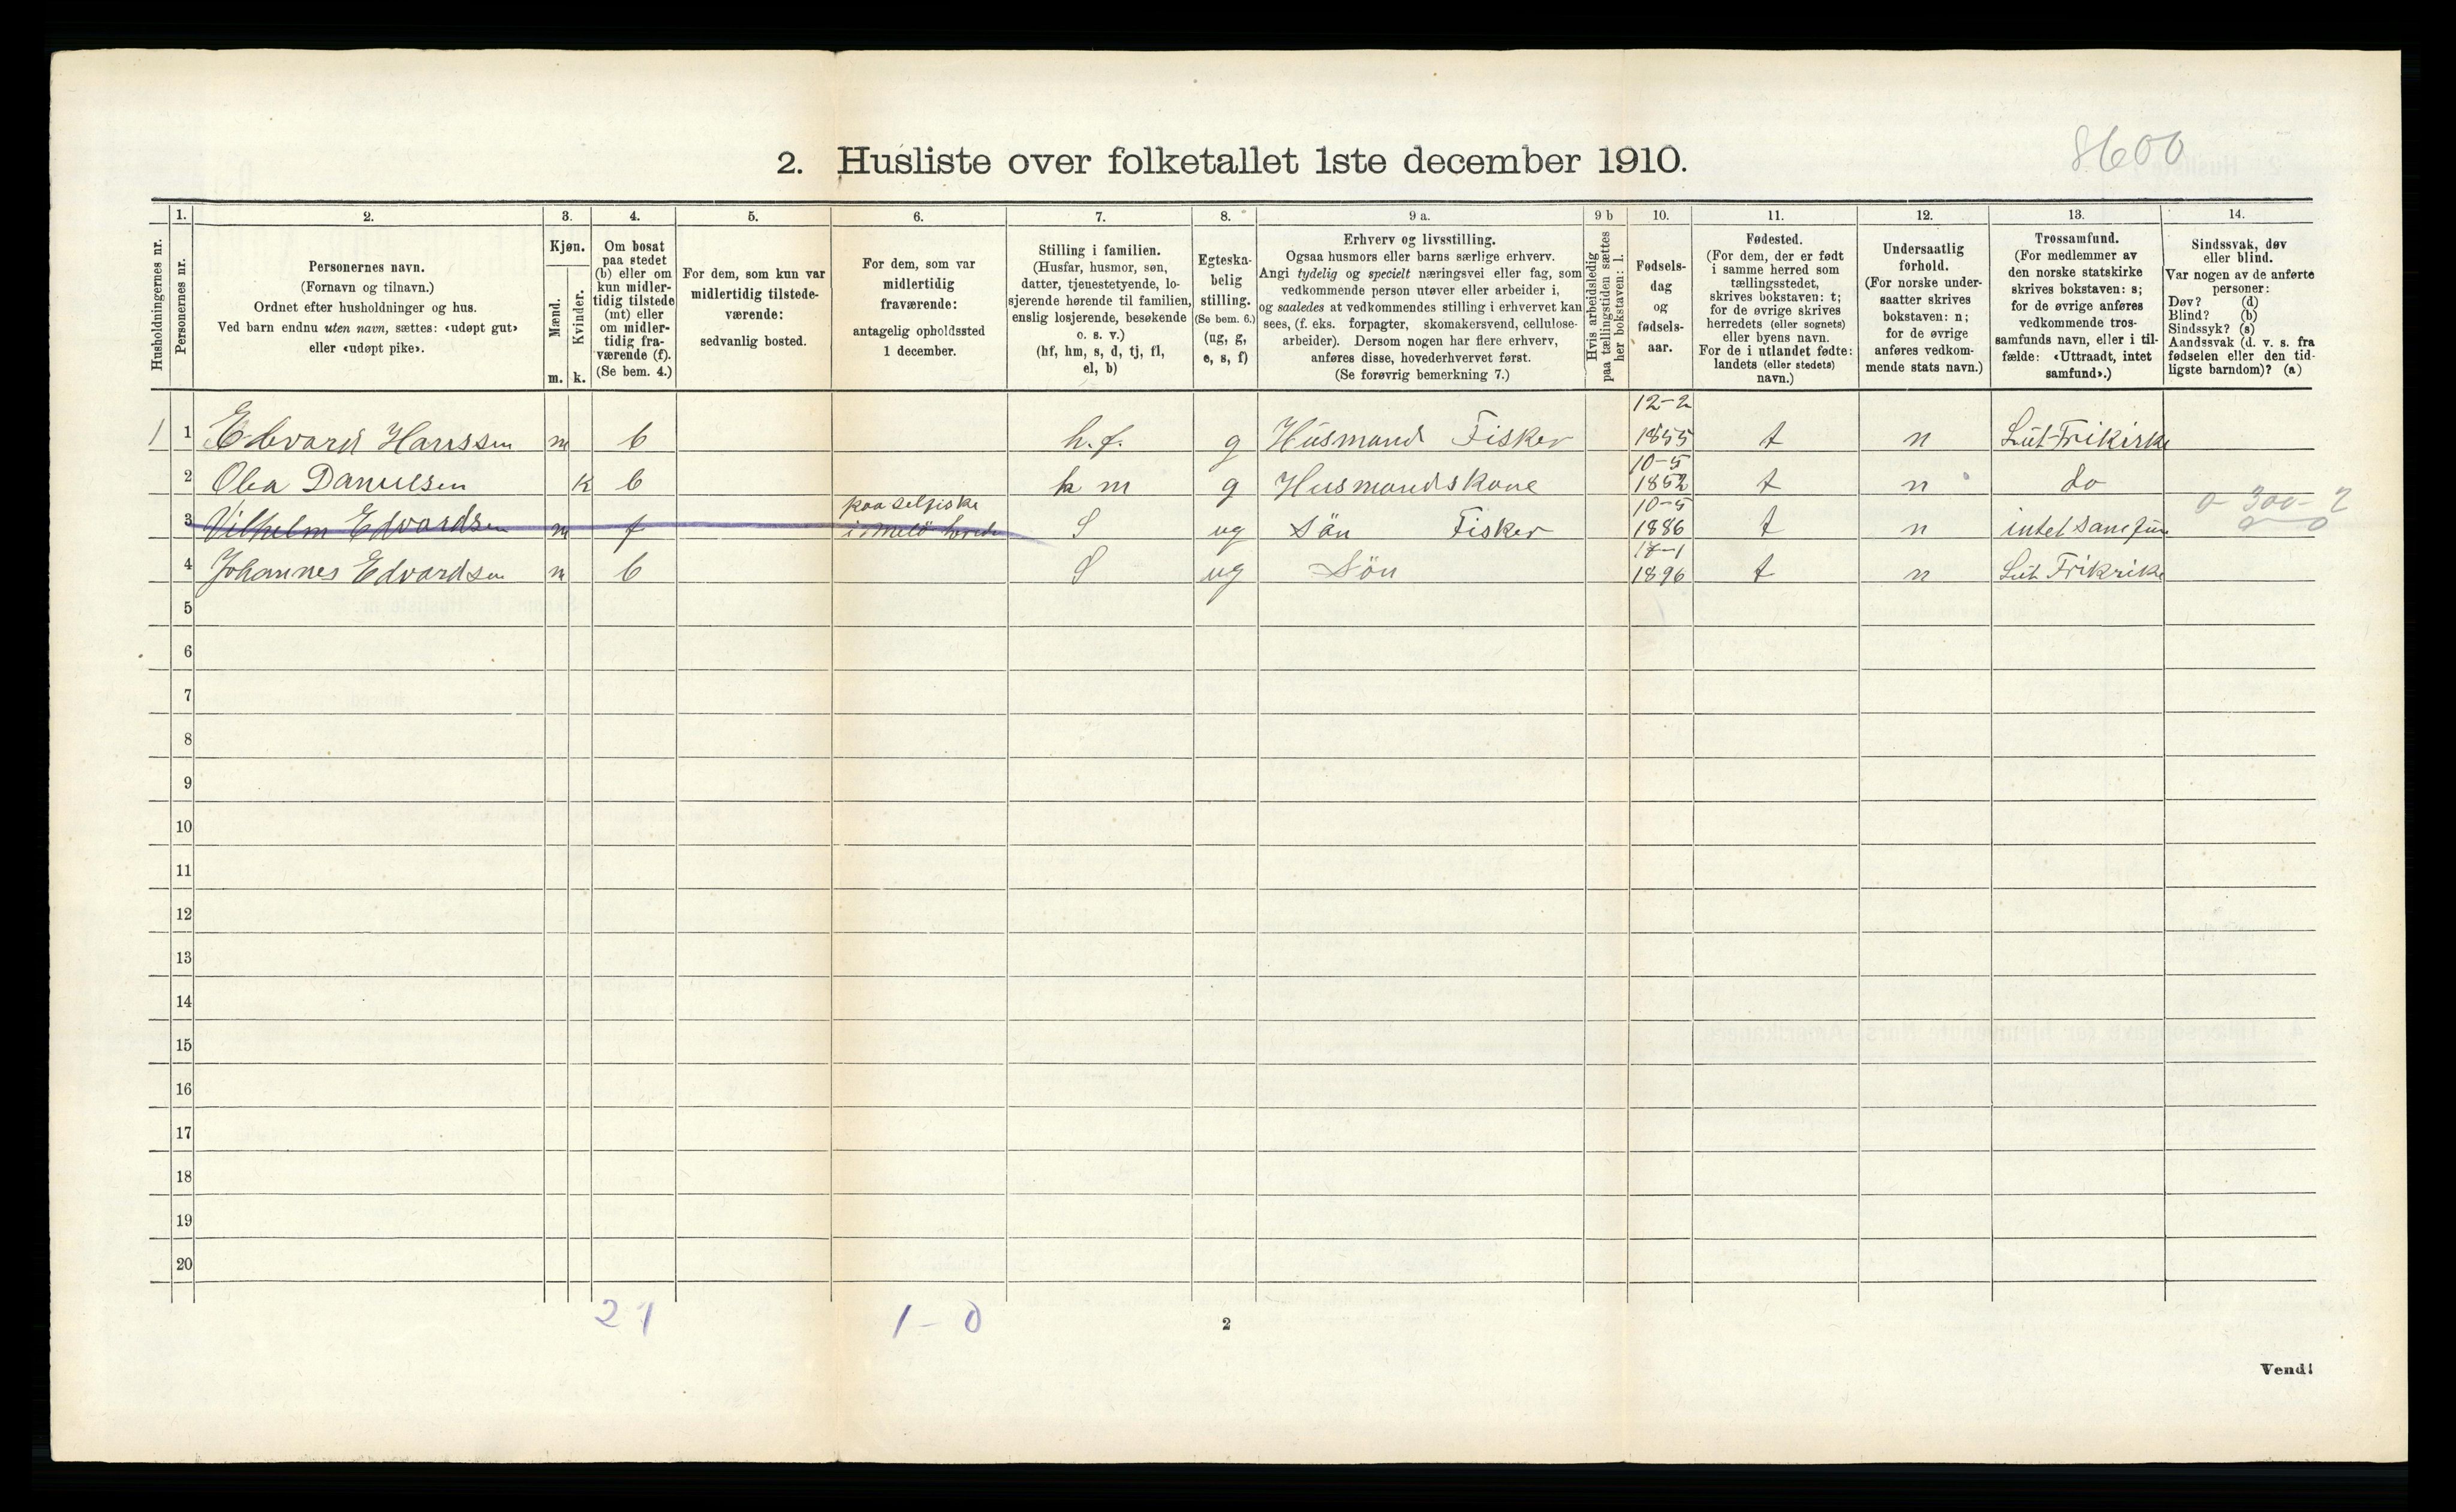 8600
2. Husliste over folketallet 1ste december 1910.
1. 2. 3. 4. 5. 6. 7. 8. 9 a. 9 b 10. 11. 12. 13. 14.
Husholdningernes nr.
Personernes nr.
Personernes navn.
(Fornavn og tilnavn.)
Ordnet efter husholdninger og hus.
Ved barn endnu uten navn, sættes: «udøpt gut»
eller «udøpt pike».
Kjøn.
Mænd.
Kvinder.
m. k.
Om bosat
paa stedet
(b) eller om
kun midler-
tidig tilstede
(mt) eller
om midler-
tidig fra-
værende (f).
(Se bem. 4.)
For dem, som kun var
midlertidig tilstede-
værende:
sedvanlig bosted.
For dem, som var
midlertidig
fraværende:
antagelig opholdssted
1 december.
Stilling i familien.
(Husfar, husmor, søn,
datter, tjenestetyende, lo-
sjerende hørende til familien,
enslig losjerende, besøkende
o. s. v.)
(hf, hm, s, d, tj, fl,
el, b)
Egteska-
belig
stilling.
(Se bem. 6.)
(ug, g,
e, s, f)
Erhverv og livsstilling.
Ogsaa husmors eller barns særlige erhverv.
Angi tydelig og specielt næringsvei eller fag, som
vedkommende person utøver eller arbeider i,
og saaledes at vedkommendes stilling i erhvervet kan
sees, (f. eks. forpagter, skomakersvend, cellulose-
arbeider). Dersom nogen har flere erhverv,
anføres disse, hovederhvervet først.
(Se forøvrig bemerkning 7.)
Hvis arbeidsledig
paa tællingstiden sættes
her bokstaven: l.
Fødsels-
dag
og
fødsels-
aar.
Fødested.
(For dem, der er født
i samme herred som
tællingsstedet,
skrives bokstaven: t;
for de øvrige skrives
herredets (eller sognets)
eller byens navn.
For de i utlandet fødte:
landets (eller stedets)
navn.)
Undersaatlig
forhold.
(For norske under-
saatter skrives
bokstaven: n;
for de øvrige
anføres vedkom-
mende stats navn.)
Trossamfund.
(For medlemmer av
den norske statskirke
skrives bokstaven: s;
for de øvrige anføres
vedkommende tros-
samfunds navn, eller i til-
fælde: «Uttraadt, intet
samfund».)
Sindssvak, døv
eller blind.
Var nogen av de anførte
personer:
Døv? (d)
Blind? (b)
Sindssyk? (s)
Aandssvak (d. v. s. fra
fødselen eller den tid-
ligste barndom)? (a)
1 1 Edvard Hanssen m b h.f. g Husmand Fisker 12-2 1855 t n Lut Frikirke
2 Olea Danielsen k b h m g Husmandskone 10-5 1852 t n do
3 Vilhelm Edvardsen m f paa selfiske i Melö herred S ug Sön Fisker 10-5 1886 t n intet samfun 0-300-2
0 0
4 Johannes Edvardsen m b S ug Sön 17-1 1896 t n Lut Frikrike
5
6
7
8
9
10
11
12
13
14
15
16
17
18
19
20
2 1 1-0
2
Vend!